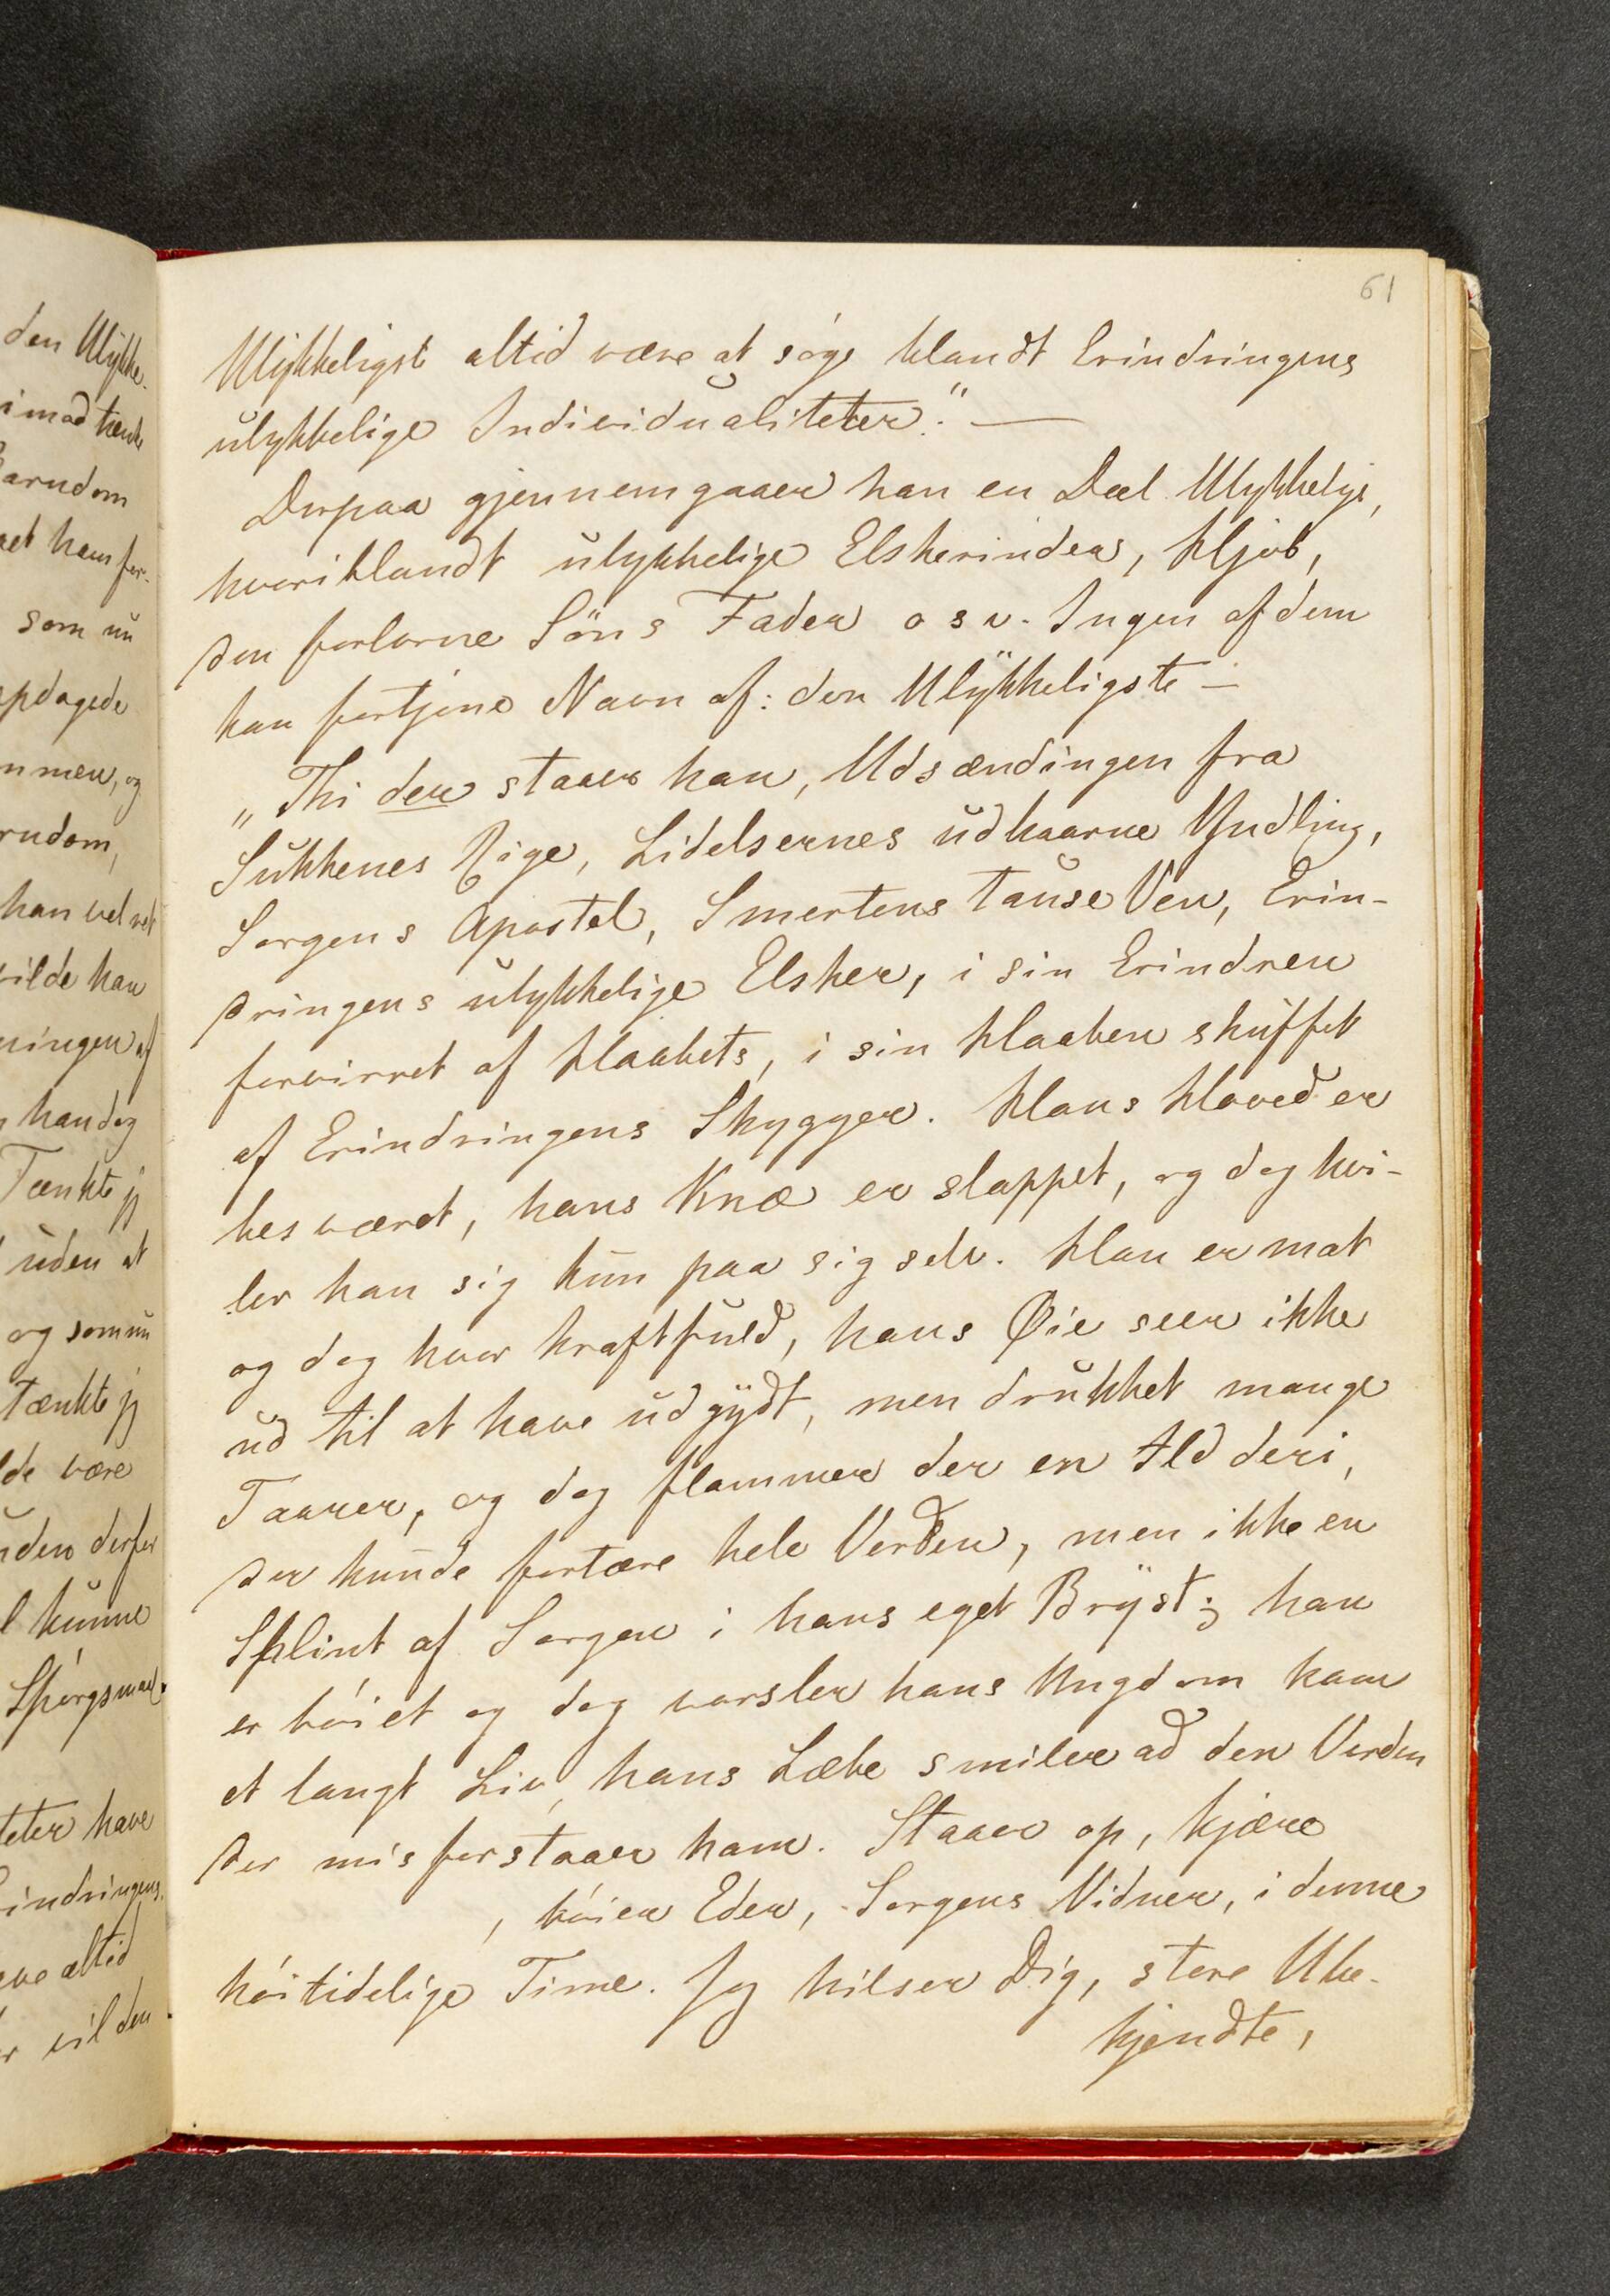 61
Ulykkeligste altid være at søge blandt Erindringens
ulykkelige Individualiteter." —
Derpaa gjennemgaaer han en Deel Ulykkelige,
hvoriblandt ulykkelige Elskerinder, Hjob,
den forlorne Søns Fader o s v. Ingen af dem
kan fortjene Navn af: den Ulykkeligste —
„Thi der staaer han, Udsændingen fra
Sukkenes Rige, Lidelsernes udkaarne Yndling,
Sorgens Apostel, Smertens tause Ven, Erin-
dringens ulykkelige Elsker, i sin Erindren
forvirret af Haabets, i sin Haaben skuffet
af Erindringens Skygger. Hans Hoved er
besværet, hans Knæ er slappet, og dog hvi-
ler han sig kun paa sig selv. Han er mat
og dog hvor kraftfuld, hans Øie seer ikke
ud til at have udgydt, men drukket mange
Taarer, og dog flammer der en Ild deri,
der kunde fortære hele Verden, men ikke en
Splint af Sorgen i hans eget Bryst; han
er bøiet og dog varsler hans Ungdom ham
et langt Liv, hans Læbe smiler ad den Verden
der misforstaaer ham. Staaer op, kjære
, bøier Eder, Sorgens Vidner, i denne
høitidelige Time. Jeg hilser Dig, store Ube-
kjendte,
den Ulykke-
imod tænk
arndom
et ham for-
som nu
pdagede
mmen, og
rndom,
han vel ret
vilde han
ningen af
han dog
Tænkte jeg
uden at
og som nu
tænkte jeg
lde være
uden derfor
l kunne
Spørgsmaal.
teter have
indringens
altid
r vil den